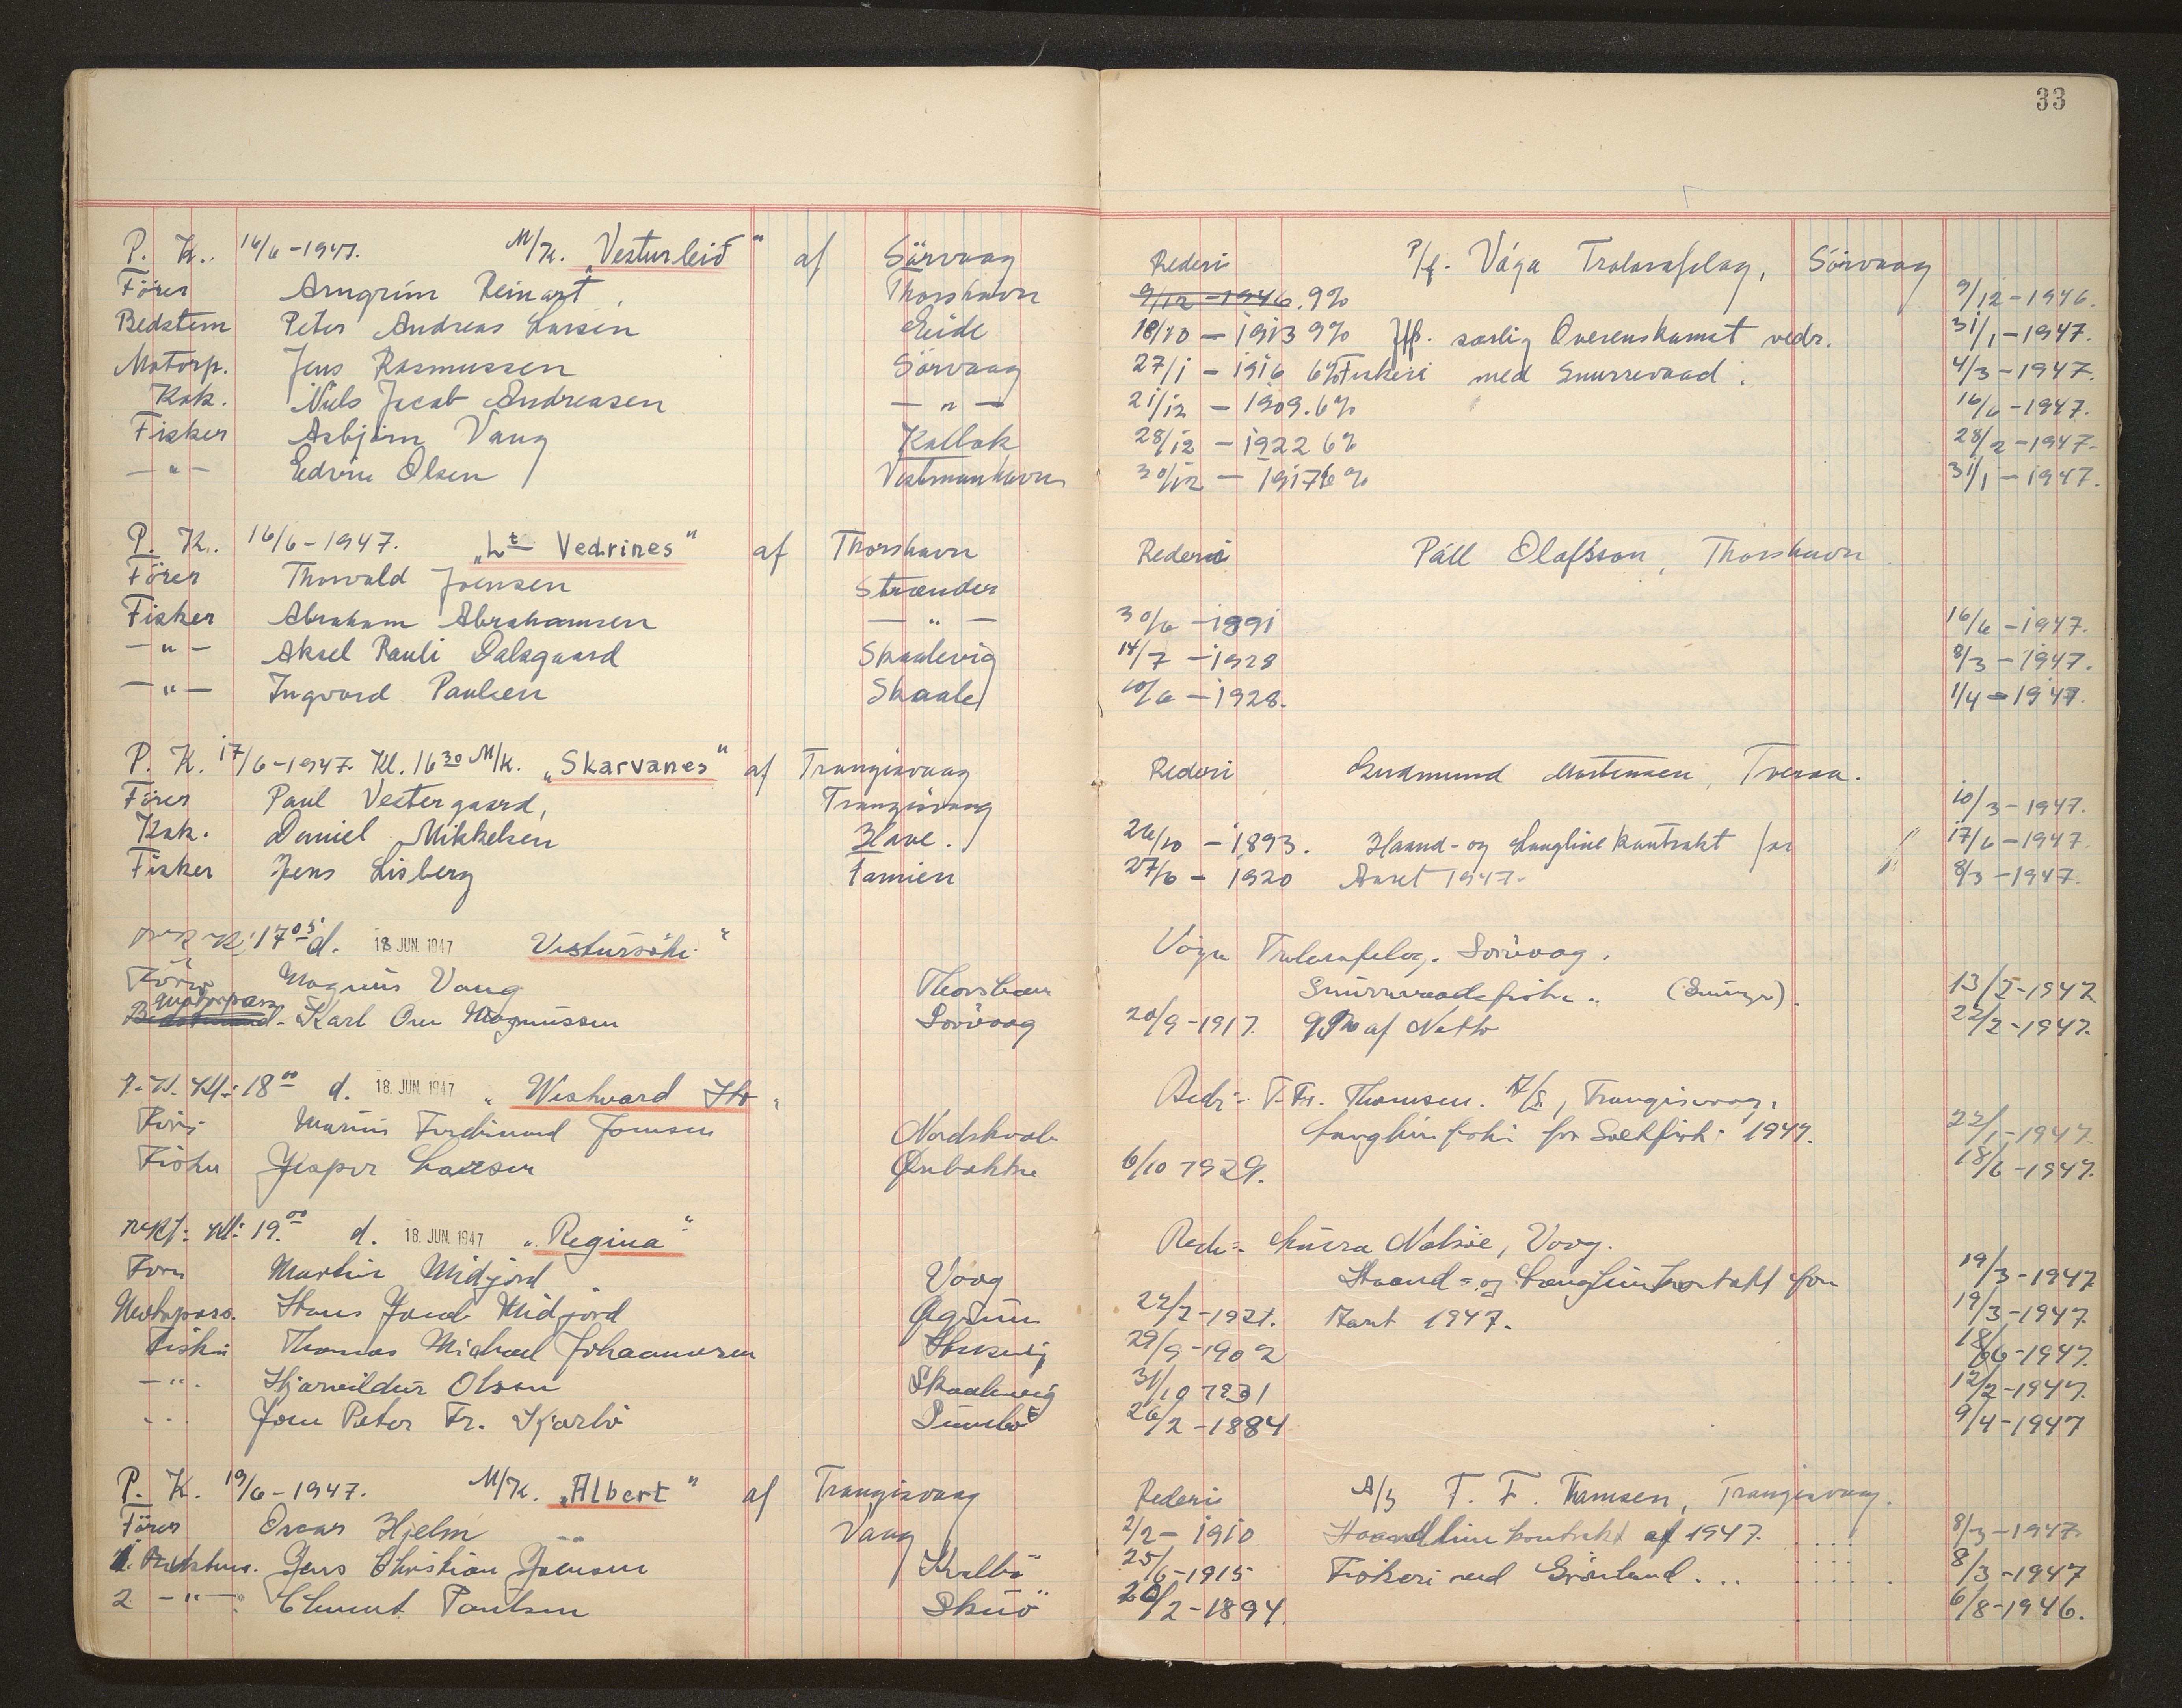 33
P. K. 16/6-1947. M/K. „Vesturleið" af Sörvaag Rederi P/f. Vága Tralarafelag, Sörvaag
Förer Arngrim Reinart, Thorshavn 9/12-1946. 9% 9/12-1946.
Bedstem Peter Andreas Larsen Eide 18/10-1913 9% Jfr. særlig Overenskomst vedr. 31/1-1947.
Motorp. Jens Rasmussen Sörvaag 27/1-1916 6% Fiskeri med Snurrevaad. 4/3-1947.
Kok. Niels Jacob Andreasen —"— 21/12-1909. 6% 16/6-1947.
Fisker Asbjörn Vang Kollak 28/12-1922 6% 28/2-1947-
—"— Edvin Olsen Vestmanhavn 30/12-1917 6% 31/1-1947.
P. K. 16/6-1947. „Lt Vedrines" af Thorshavn Rederi Páll Olafsson, Thorshavn
Förer Thorvald Joensen Strænder
Fisker Abraham Abrahamsen —"— 30/6-1891 16/6-1947.
—"— Aksel Pauli Dalsgaard Skaalevig 14/7-1928 8/3-1947.
—"— Ingvard Paulsen Skaale 10/6-1928. 1/4-1947.
P. K. 17/6-1947. Kl. 16 30 M/K. „Skarvanes" af Trangisvaag Rederi Gudmund Mortensen, Tveraa.
Förer Paul Vestergaard, Trangisvaag 10/3-1947.
Kok. Daniel Mikkelsen Hove. 26/10-1893. Haand- og Langlinekontrakt for " 17/6-1947.
Fisker Jens Lisberg Famien 27/6-1920 Aaret 1947- " 8/3-1947.
17 05 d. 18 JUN. 1947 Vestursöki" Vága Tralarafelag. Sörvaag.
Förer Magnus Vang Thorshavn Snurrevaadsfiskeri.. 13/2-1947
Motorpass. Karl Ove Magnussen Sörvaag 20/9-1917. 9% af Netto 22/2-1947.
P.K. Kl: 18 00 d. 18. JUN. 1947 „Westward Ho" Red:- T. Fr. Thomsen. A/S, Trangisvaag,
Förer Marius Ferdinand Joensen Nordskole Langlinefiskeri for Saltfisk: 1947. 22/1-1947
Fisker Jesper Larsen 6/10 1929. 18/6-1947.
Kl: 19. 00 d. 18. JUN. 1947 „Regina" Red:- Nolsöe, Vaag.
Förer Martin Midjord Vaag Haand- og Langlinekontrakt for 19/3-1947
Motorpass. Hans Jacob Midjord 22/2-1921. Aaret 1947. 19/3-1947.
Fisker Thomas Michael Johannesen 29/9-1902 18/6-1947.
—". Olsen Skaalevig 31/10 1931 12/2-1947.
-.. Joen Peter Fr. Kjærbo Sumbö 26/2-1884 9/4-1947
P. K. 19/6-1947. M/K. „Albert" af Trangisvaag Rederi A/S T. F. Thomsen, Trangisvaag.
Förer Oscar Hjelm Vaag 2/2-1910 Haandlinekontrakt af 1947. 8/3-1947.
1. Bedstem. Jens Christian Joensen Kvalbö 25/6-1915 Fiskeri ved Grönland... 8/3-1947
2 —"— Clement Poulsen Skuö 20/2-1894. 6/8-1946.